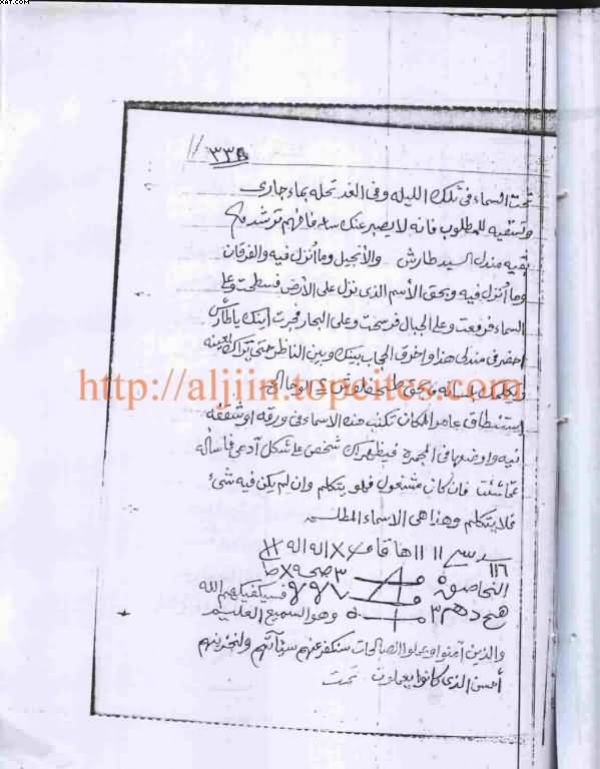 XAT.COM
تحت السماء فى تلك الليله وفى الغد تحله بماء جارى
وتسقيه للمطلوب فانه لا يصبر عنك فافهم ترشد
مندل السيد طارش والانجيل وما أنزل فيه والفرقان
وما أنزل فيه وبحق الأسم الذى نزل على الأرض فسطحت وعلى
السماء فرفعت وعلى الجبال فرسخت وعلى البحار فجرت أينك يا طارش
احضر فى مندلى هذا واخرق الحجاب بينك وبين الناظر حتى يراك بعينه
http://aljiin.topcites.com
إستنطاق عامر المكان تكتب هذه الاسماء فى ورقه أو شقفه
نيه واوضعها فى المجمرة فيظهر لك شخص على شكل آدمى فأساله
عما شئت فان كان مشغول فهو يتكلم وان لم يكن فيه شىء
فلا يتكلم وهذا هى الاسماء
١١٦
فسيكفيكهم الله
وهو السميع العليم
والذين آمنوا وعملوا الصالحات سنكفر عنهم سيئآتهم ولنجزينهم
أحسن الذى كانوا يعملون تمت